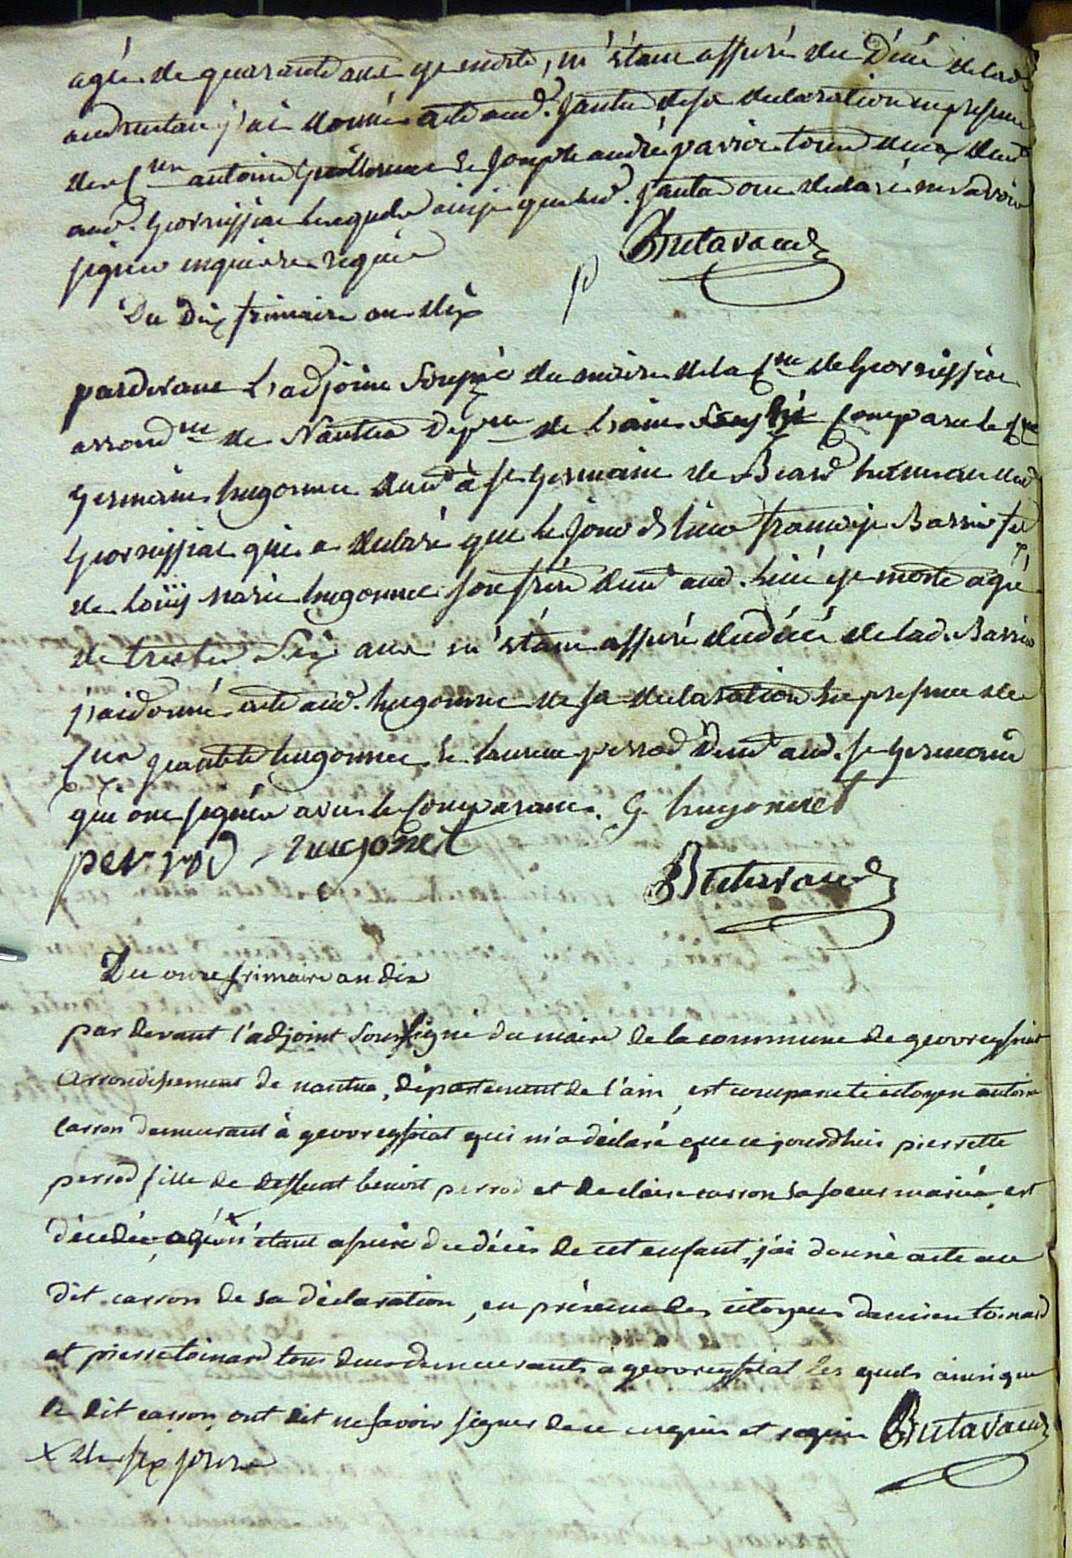 agée de quarante ans est morte, m'étant assuré du Décé de lad.
j'ai donné acte aud. Jantet de sa declaration en presence
des Cyens antoine Guillermet & Joseph andré tous deux demt
aud. Geovreissiat lesquels ainsi que led. Jantet ont declaré ne savoir
signer enquis & requis
Butavand
Du Dix frimaire an dix
pardevant L'adjoint soussigné du maire de la Cne de Geovreissiat
arrondnt de Nantua Depnt de L'ain est comparu le Cyen
Germain hugonnet demt à St Germain de Beard hameau de
Geovreissiat qui a declaré que le jour d'hier françoise Barrio fe
de Louis marie hugonnet son frère demt aud. lieu est morte agée
de trente Six ans m'étant assuré du décé de lad. Barrio
j'ai donné acte aud. hugonnet de sa declaration en presence des
Cyens hugonnet & laurent perrod demt aud. St Germain
qui ont signé avec le Comparant. G hugonnet
perrod hugonet
Butavand
Du onze frimaire an dix
par devant l'adjoint soussigné du maire de la commune de geovreyssiat
arrondissement de nantua, département de l'ain, est comparu le citoyen antoine
carron demeurant à geovreyssiat qui m'a déclaré que ce jourd'hui pierrette
perrod fille de deffunt benoit perrod et de claire carron sa soeur mariée, est
décédée agée x m'étant assuré du décés de cet enfant, j'ai donné acte au
dit carron de sa déclaration, en présence des citoyens damien toinard
et pierre toinard tous deux demeurants a geovreyssiat les quels ainsi que
le dit carron ont dit ne savoir signer de ce enquis et requis Butavand
x de six jours